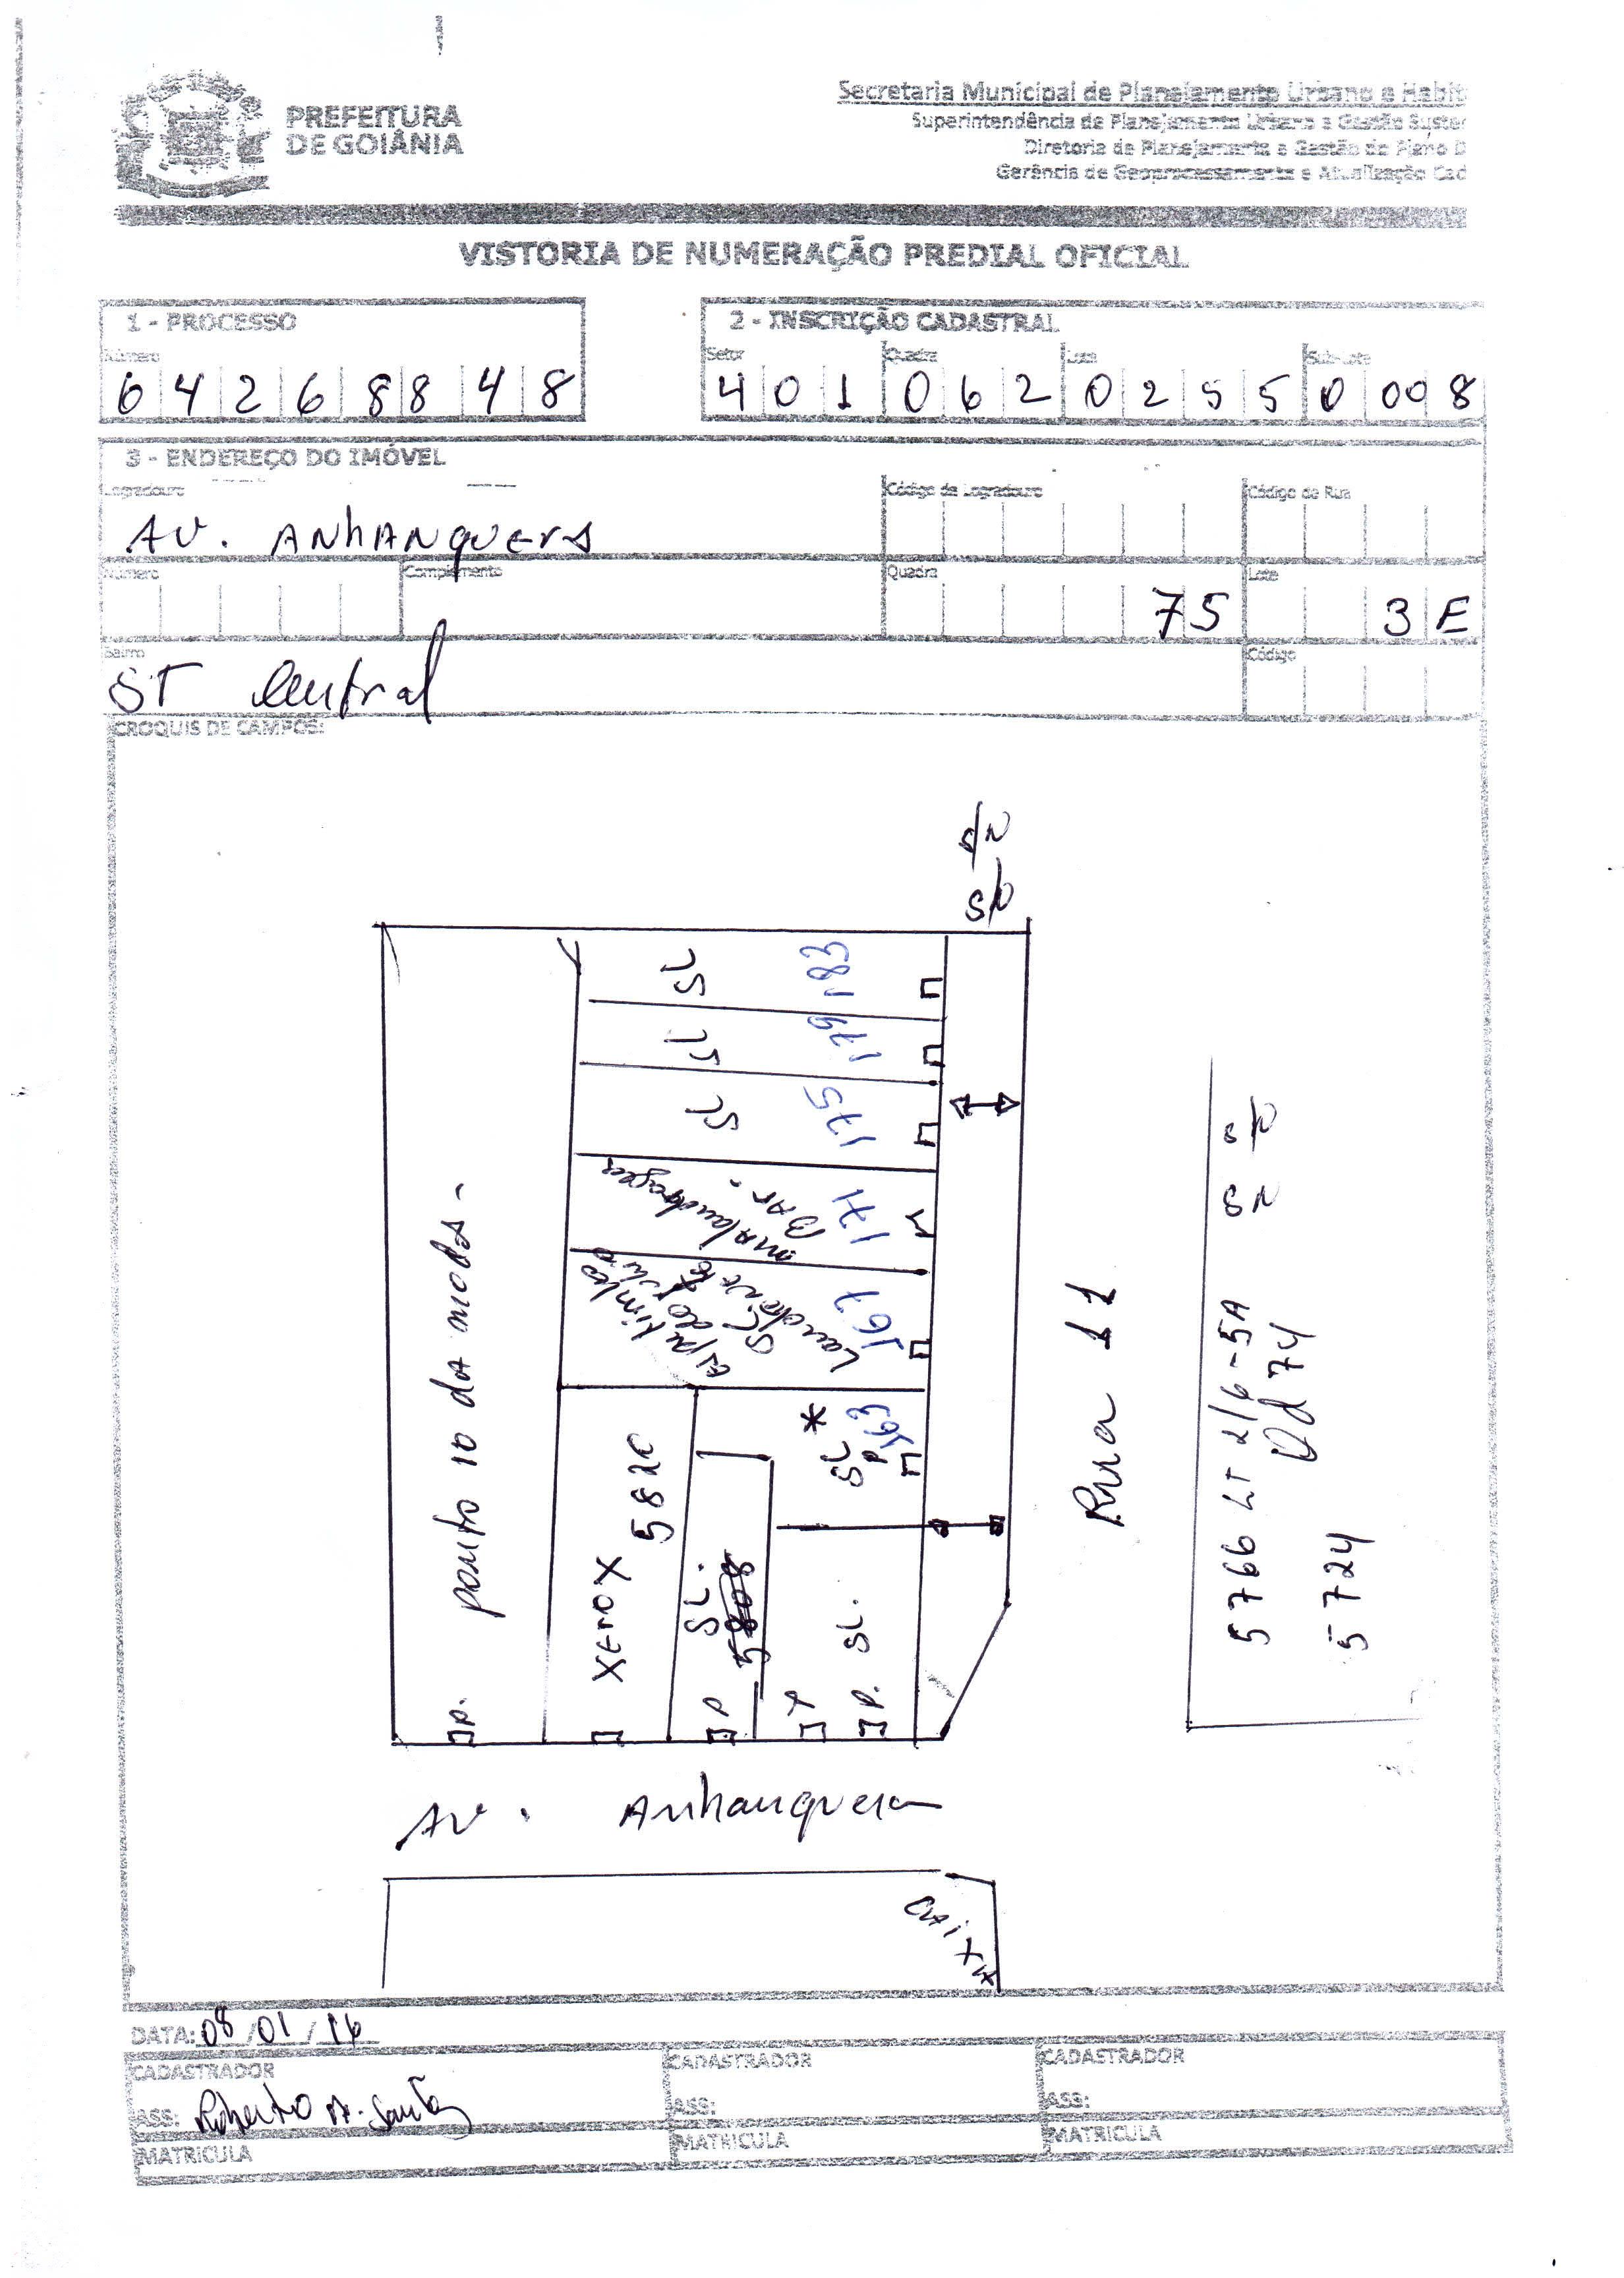 PREFEITURA
DE GOIÂNIA
Secretaria Municipal de Planejamento Urbano e Habit
Superintendência de Planejamento Urbano e Gestão Susten
Diretoria de Planejamento e Gestão do Plano D
Gerência de Geoprocessamento e Atualização Cad
VISTORIA DE NUMERAÇÃO PREDIAL OFICIAL
1 - PROCESSO
Número
6 4 2 6 8 8 4 8
2 - INSCRIÇÃO CADASTRAL
Setor Quadra Lote Sub-Lote
4 0 1 0 6 2 0 2 5 5 0 00 8
3 - ENDEREÇO DO IMÓVEL
Logradouro Código de Logradouro Código de Rua
AV. ANhANquERA
Número Complemento Quadra Lote
75 3 E
Bairro Código
ST Central
CROQUIS DE CAMPOS:
S/N
S/N
SL 183
SL 179
SL 175
malandragem
BAR.
171
167
SL *
P 163
ponto 10 da moda -
P.
XEROX
5820
SL.
5808
P
P
SL.
P.
Rua 11
S/N
SN
5766 LT 2/6-5A
Qd 74
5724
AV. Anhanquera
CAIXA
DATA: 08/01/16
CADASTRADOR CADASTRADOR CADASTRADOR
ASS: Roberto A. Santos ASS: ASS:
MATRICULA MATRICULA MATRICULA